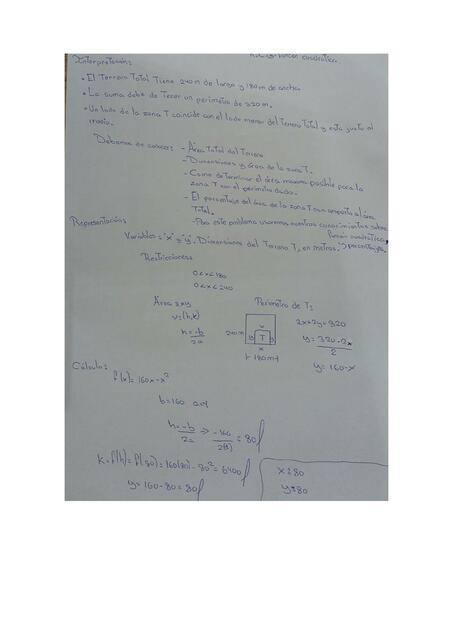 cuadrática.
Interpretación:
• El Terreno Total Tiene 240m de largo y 180m de ancho
• La suma debe de Tener un perímetro de 320m.
• Un lado de la zona T coincide con el lado menor del Terreno Total y esta justo al
medio.
Debemos de conocer: - Área Total del Terreno
- Dimensiones y área de la zona T.
- Como determinar el área máxima posible para la
zona T con el perímetro dado.
- El porcentaje del área de la zona T con respecto al área
Total.
- Para este problema usaremos nuestros conocimientos sobre
función cuadrática
Representación
Variables = "x" e "y". Dimensiones del Terreno T, en metros. y porcentajes.
Restricciones
0<x<180
0<x<240
Área: x×y
Perímetro de T:
v=(h,k)
2x+2y=320
h=-b
2a
240m
y
T
y
x
180m
y=320-2x
2
y=160-x
Cálculo:
f(x)=160x-x²
b=160
h=-b/2a => -160/2(-1) = 80
k=f(h)=f(80)=160(80)-80²=6400
y=160-80=80
x=80
y=80